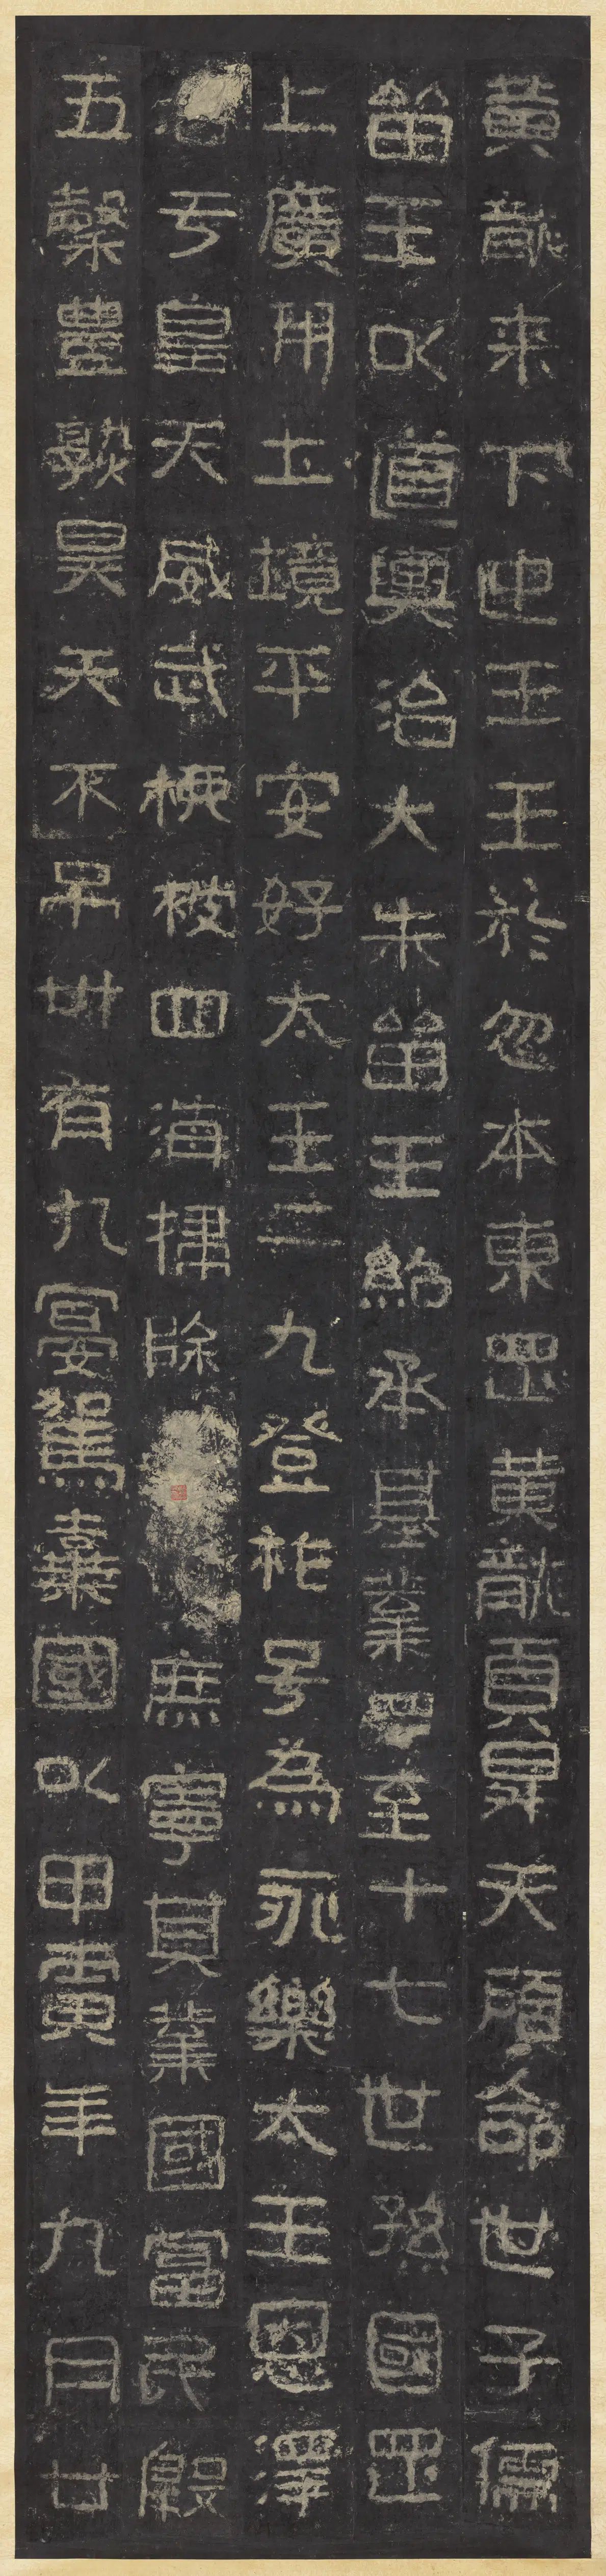 黃龍来下迎王王於忽本東罡黃龍頁昇天顧命世子儒
留王以道興治大朱留王紹承基業遝至十七世孫國罡
上廣開土境平安好太王二九登祚号為永樂太王恩澤
洽于皇天威武振被四海掃除庶寧其業國富民殷
五穀豊熟昊天不弔卅有九宴駕棄國以甲寅年九月廿